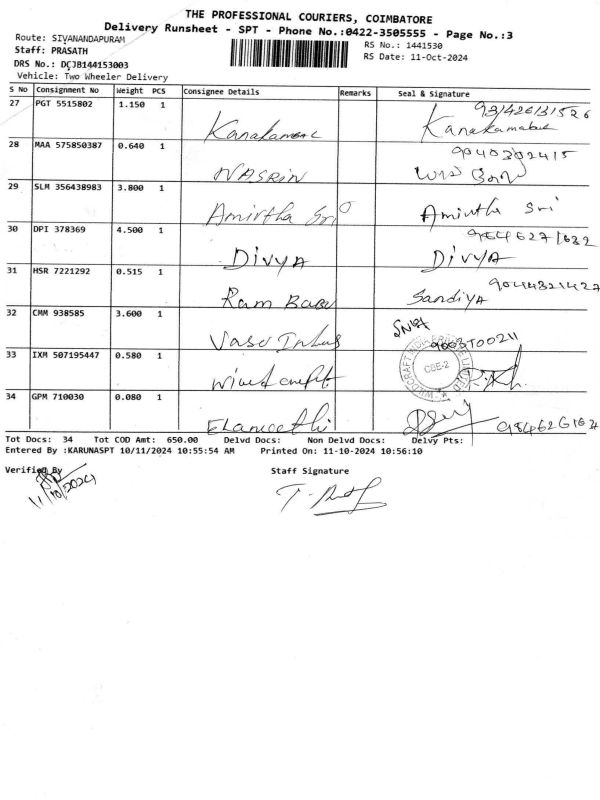 THE PROFESSIONAL COURIERS, COIMBATORE
Delivery Runsheet - SPT - Phone No.:0422-3505555 - Page No.:3
Route: SIVANANDAPURAM
RS No.: 1441530
Staff: PRASATH
RS Date: 11-Oct-2024
DRS No.: DCJB144153003
Vehicle: Two Wheeler Delivery
S No Consignment No Weight PCS Consignee Details Remarks Seal & Signature
27 PGT 5515802 1.150 1 Kanakambal Kanakamabal
28 MAA 575850387 0.640 1 NASRIN 9040302415
29 SLM 356438983 3.800 1 Amirtha Sri Amirtha Sri
30 DPI 378369 4.500 1 DIVYA DIVYA
31 HSR 7221292 0.515 1 Ram BABU Sandiya 9044321427
32 CMM 938585 3.600 1 Vasu
33 IXM 507195447 0.580 1 CBE-2
34 GPM 710030 0.080 1
Tot Docs: 34 Tot COD Amt: 650.00 Delvd Docs: Non Delvd Docs: Delvy Pts:
Entered By :KARUNASPT 10/11/2024 10:55:54 AM Printed On: 11-10-2024 10:56:10
Verified By Staff Signature
11/10/2024